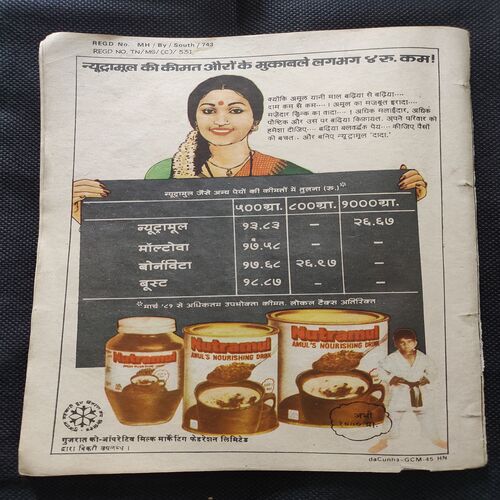 REGD No. MH / By / South / 743
REGD NO. TN/MS/(C)/531
न्यूट्रामूल की कीमत औरों के मुकाबले लगभग ४ रु. कम!
क्योंकि अमूल यानी माल बढ़िया से बढ़िया....
दाम कम से कम.... । अमूल का मजबूत इरादा....
मज़ेदार ड्रिन्क का वादा.... । अधिक मलाईदार, अधिक
पौष्टिक और उस पर बढ़िया किफ़ायत. अपने परिवार को
हमेशा दीजिए.... बढ़िया बलवर्द्धक पेय.... कीजिए पैसों
की बचत. और बनिए न्यूट्रामूल 'दादा.'
न्यूट्रामूल जैसे अन्य पेयों की कीमतों में तुलना (रु.)*
५००ग्रा. ८००ग्रा. १०००ग्रा.
न्यूट्रामूल १३.८३ – २६.६७
मॉल्टोवा १७.५८ – –
बोर्नविटा १७.६८ २६.९७ –
बूस्ट १८.८७ – –
*मार्च '८१ से अधिकतम उपभोक्ता कीमत. लोकल टैक्स अतिरिक्त
Nutramul
Nutramul
AMUL'S NOURISHING DRINK
Nutramul
AMUL'S NOURISHING DRINK
अभी
१००० ग्रा.
गुजरात को-ऑपरेटिव मिल्क मार्केटिंग फेडरेशन लिमिटेड
द्वारा बिक्री उपलब्ध ।
daCunha-GCM-45 HN